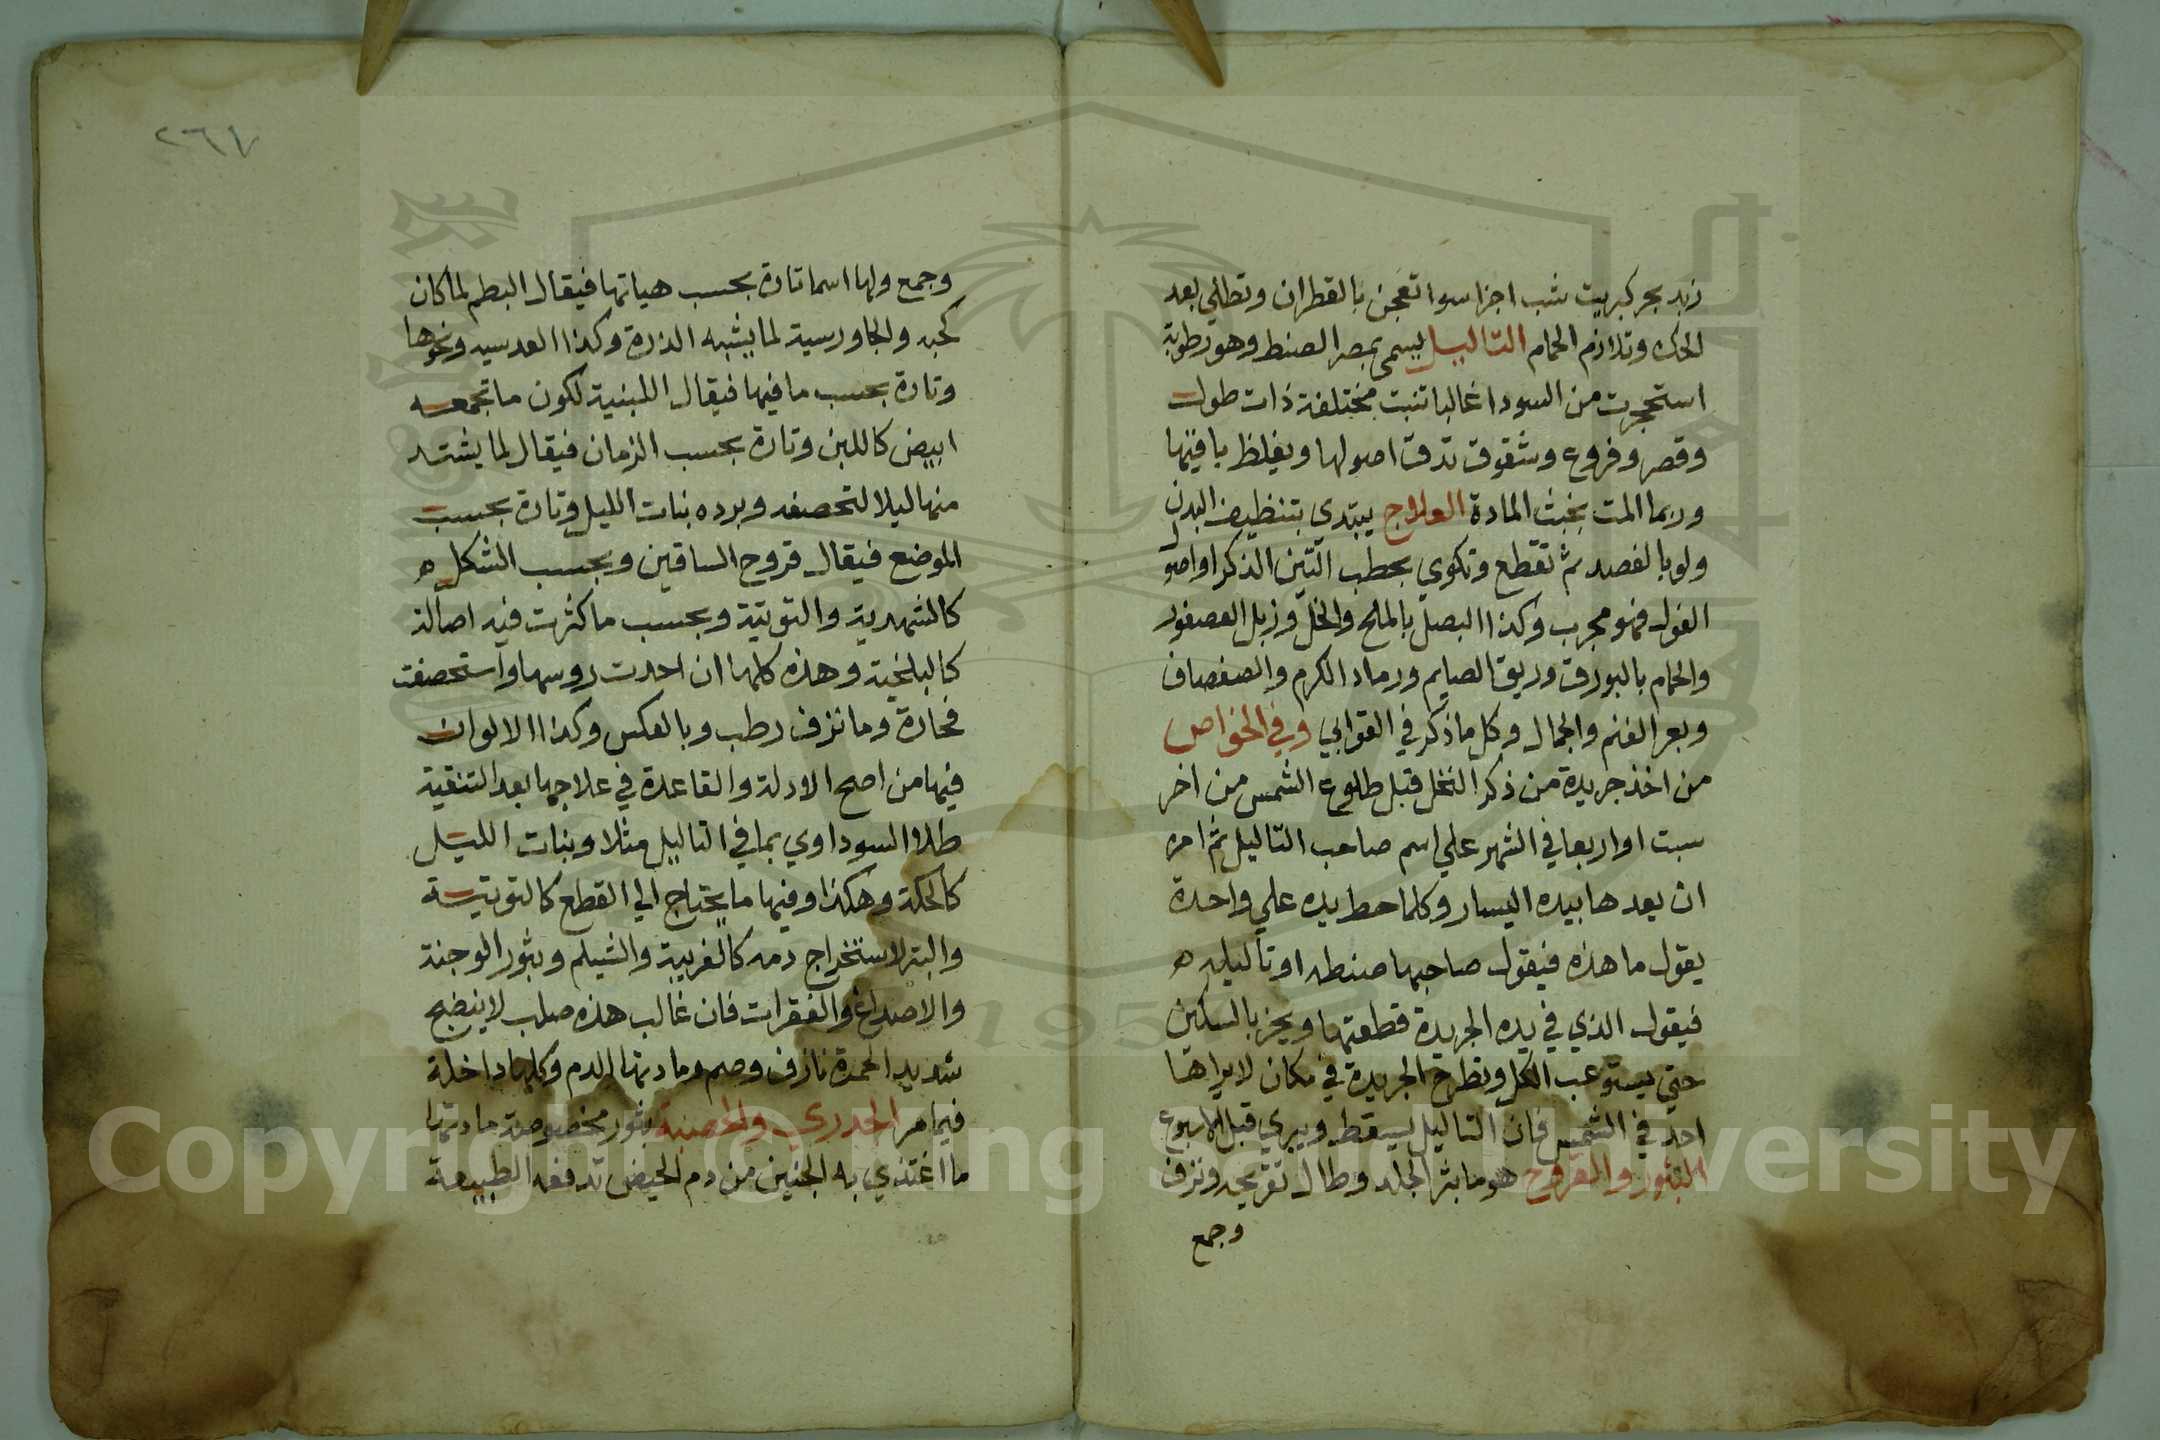 زبد بحر كبريت شب اجزا سوا تعجن بالقطران وتطلي بعد
الحك وتلازم الحمام التاليل يسمى بمصر الصنط وهو رطوبة
استحجرت من السودا غالبا تنبت مختلفة ذات طول
وقصر وفروع وشقوق تدق اصولها ويغلظ باقيها
وربما المت بخبث المادة العلاج يبتدي بتنظيف البدن
ولو بالفصد ثم تقطع وتكوي بحطب التين الذكر او اصول
الفول فهو مجرب وكذا البصل بالملح والخل وزبل العصفور
والحمام بالبورق وريق الصايم ورماد الكرم والصفصاف
وبعر الغنم والجمال وكل ما ذكر في القوابي وفي الخواص
من اخذ جريدة من ذكر النخل قبل طلوع الشمس من اخر
سبت او اربعا في الشهر علي اسم صاحب التاليل ثم امره
ان يعدها بيده اليسار وكلما حط يده علي واحدة
يقول ما هذه فيقول صاحبها صنطه او تاليله ه
فيقول الذي في يده الجريدة قطعتها ويحز بالسكين
حتي يستوعب الكل وتطرح الجريدة في مكان لا يراها
احد في الشمس فان التاليل يسقط ويبري قبل الاسبوع
البثور والقروح هو ما بثر الجلد وطال تقريحه ونزف
وجمع
٢٦٧
وجمع ولها اسما تارة بحسب هياتها فيقال البطم لما كان
كحبه والجاورسية لما يشبه الذرة وكذا العدسيه ونحوها
وتارة بحسب ما فيها فيقال اللبنية لكون ما تجمعه
ابيض كاللبن وتارة بحسب الزمان فيقال لما يشتد
منها ليلا لتحصفه وبرده بنات الليل وتارة بحسب
الموضع فيقال قروح الساقين وبحسب الشكل ه
كالشهدية والتوتية وبحسب ما كثرت فيه اصالة
كالبلخية وهذه كلها ان احدت روسها واستحصفت
فحارة وما نزف رطب وبالعكس وكذا الالوان
فيها من اصح الادلة والقاعدة في علاجها بعد التنقية
طلاا السوداوي بما في التاليل مثلا وبنات الليل
كالحكة وهكذا وفيها ما يحتاج الي القطع كالتوتية
والبتر لاستخراج دمه كالغريبة والشيلم وبثور الوجنة
والاصداغ والفقرات فان غالب هذه صلب لا ينضج
شديد الحمرة نازف وصم ومادتها الدم وكلها داخلة
فيما مر الجدري والحصبة بثور مخصوصة مادتها
ما اغتذي به الجنين من دم الحيض تدفعه الطبيعة
Copyright © King Saud University
1957